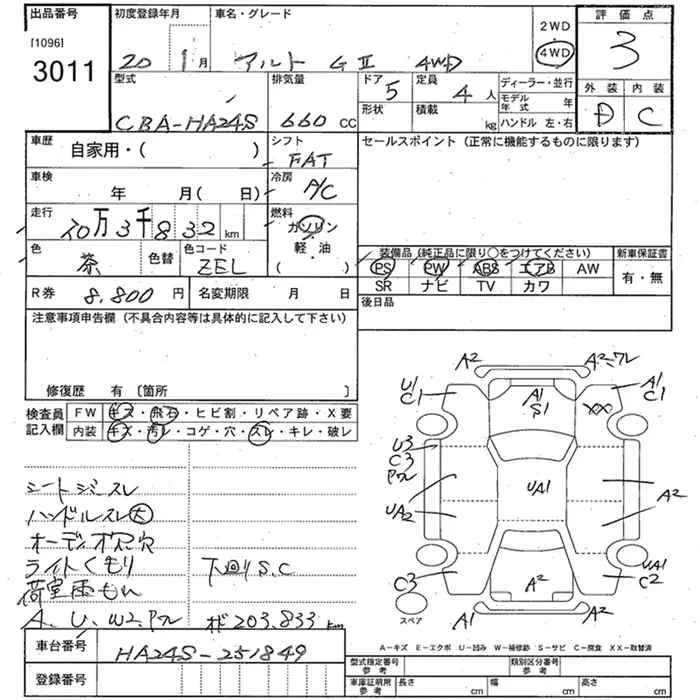 出品番号 初度登録年月 車名・グレード 2WD 4WD 評価点
[1096] 3011 20 1月 アルト GⅡ 4WD 3
外装 内装
D C
型式 排気量 ドア 定員 ディーラー・並行
CBA-HA24S 660 CC 5 4人 モデル年式 年
形状 積載 kg ハンドル 左・右
車歴 自家用・( ) シフト FAT セールスポイント (正常に機能するものに限ります)
車検 年 月( 日) 冷房 A/C
走行 20万3千832km 燃料 ガソリン 軽・油 ( )
色 茶 色替 色コード ZEL
装備品 (純正品に限り○をつけてください) 新車保証書
PS PW ABS エアB AW 有・無
SR ナビ TV カワ
R券 8,800円 名変期限 月 日 後日品
注意事項申告欄 (不具合内容等は具体的に記入して下さい)
修復歴 有 〔箇所 〕
検査員記入欄 FW キズ・飛石・ヒビ割・リペア跡・X要
内装 キズ・汚レ・コゲ・穴・スレ・キレ・破レ
シートシミスレ
ハンドルスレ大
オーディオ穴
ライトくもり 下回りS.C
荷室雨もれ
A、U、W2 Pワレ 203,833 km
車台番号 HA24S-251849
登録番号
A2 A2ワレ
U1 C1 A1 S1 XX A1 C1
U3 C3 Pワレ UA1
UA2 A2
C3 A2 UA1 C2
スペア A1 A2
A-キズ E-エクボ U-凹み W-補修跡 S-サビ C-腐食 XX-取替済
型式指定番号 参考 類別区分番号 参考
車庫証明用 参考 長さ cm 幅 cm 高さ cm